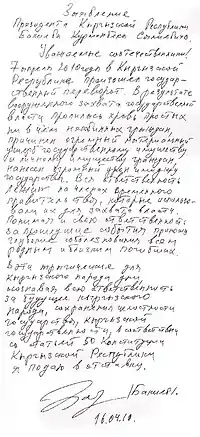 Заявление
Президента Кыргызской Республики
Бакиева Курманбека Салиевича.
Уважаемые соотечественники!
7 апреля 2010 года в Кыргызской
Республике произошел государ-
ственный переворот. В результате
вооруженного захвата государственной
власти пролилась кровь простых
ни в чем неповинных граждан,
причинен огромный материальный
ущерб государственному имуществу
и личному имуществу граждан,
нанесен огромный урон имиджу
государства. Вся ответственность
лежит на членах временного
правительства, которые использо-
вали их для захвата власти.
Понимая и свою ответственность
за прошедшие события приношу
глубокие соболезнования всем
родным и близким погибших.
В эти трагические для
Кыргызского народа дни
осознавая всю ответственность
за будущее кыргызского
народа, сохранения целостности
государства, кыргызской
государственности, в соответствии
со статьей 50 Конституции
Кыргызской Республики
я подаю в отставку.
/Бакиев К./
16.04.10.